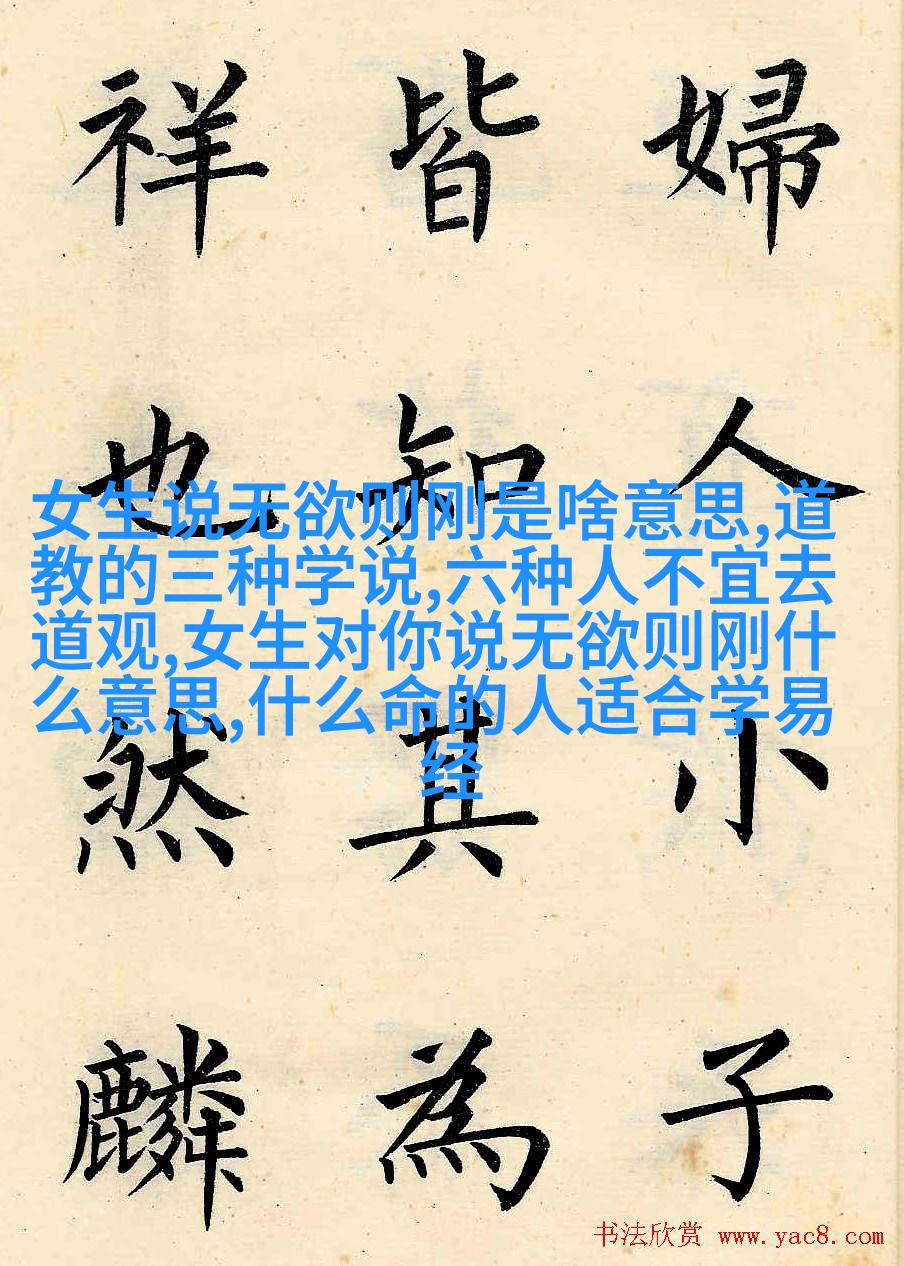 婦人小子
皆知其為
祥也然麟
女生说无欲则刚是啥意思,道
教的三种学说,六种人不宜去
道观,女生对你说无欲则刚什
么意思,什么命的人适合学易
经
书法欣赏 www.yac8.com